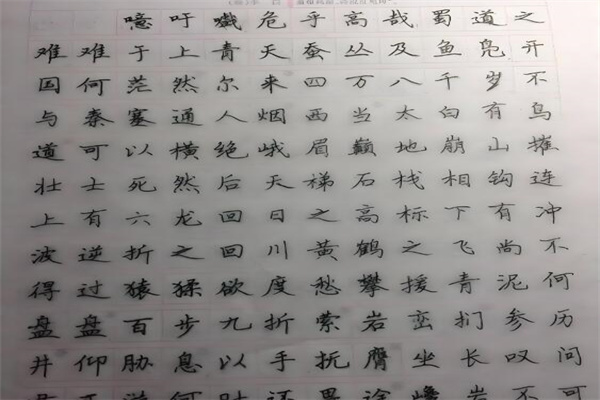 噫吁嚱危乎高哉蜀道之
难难于上青天蚕丛及鱼凫开
国何茫然尔来四万八千岁不
与秦塞通人烟西当太白有鸟
道可以横绝峨眉巅地崩山摧
壮士死然后天梯石栈相钩连
上有六龙回日之高标下有冲
波逆折之回川黄鹤之飞尚不
得过猿猱欲度愁攀援青泥何
盘盘百步九折萦岩峦扪参历
井仰胁息以手抚膺坐长叹问
何时还畏途巉岩不可